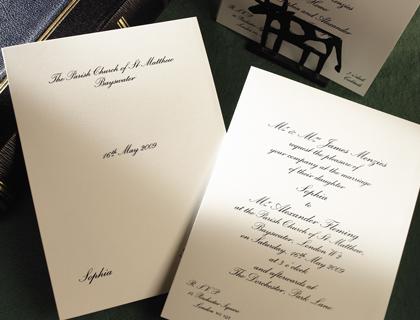 The Parish Church of St Matthew
Bayswater
16th May 2009
Sophia
Mr & Mrs James Menzies
request the pleasure of
your company at the marriage
of their daughter
Sophia
to
Mr Alexander Fleming
at the Parish Church of St Matthew,
Bayswater, London W2
on Saturday, 16th May 2009
at 3 o'clock
and afterwards at
The Dorchester, Park Lane
R S V P
Square
London
Menzies
and Alexander